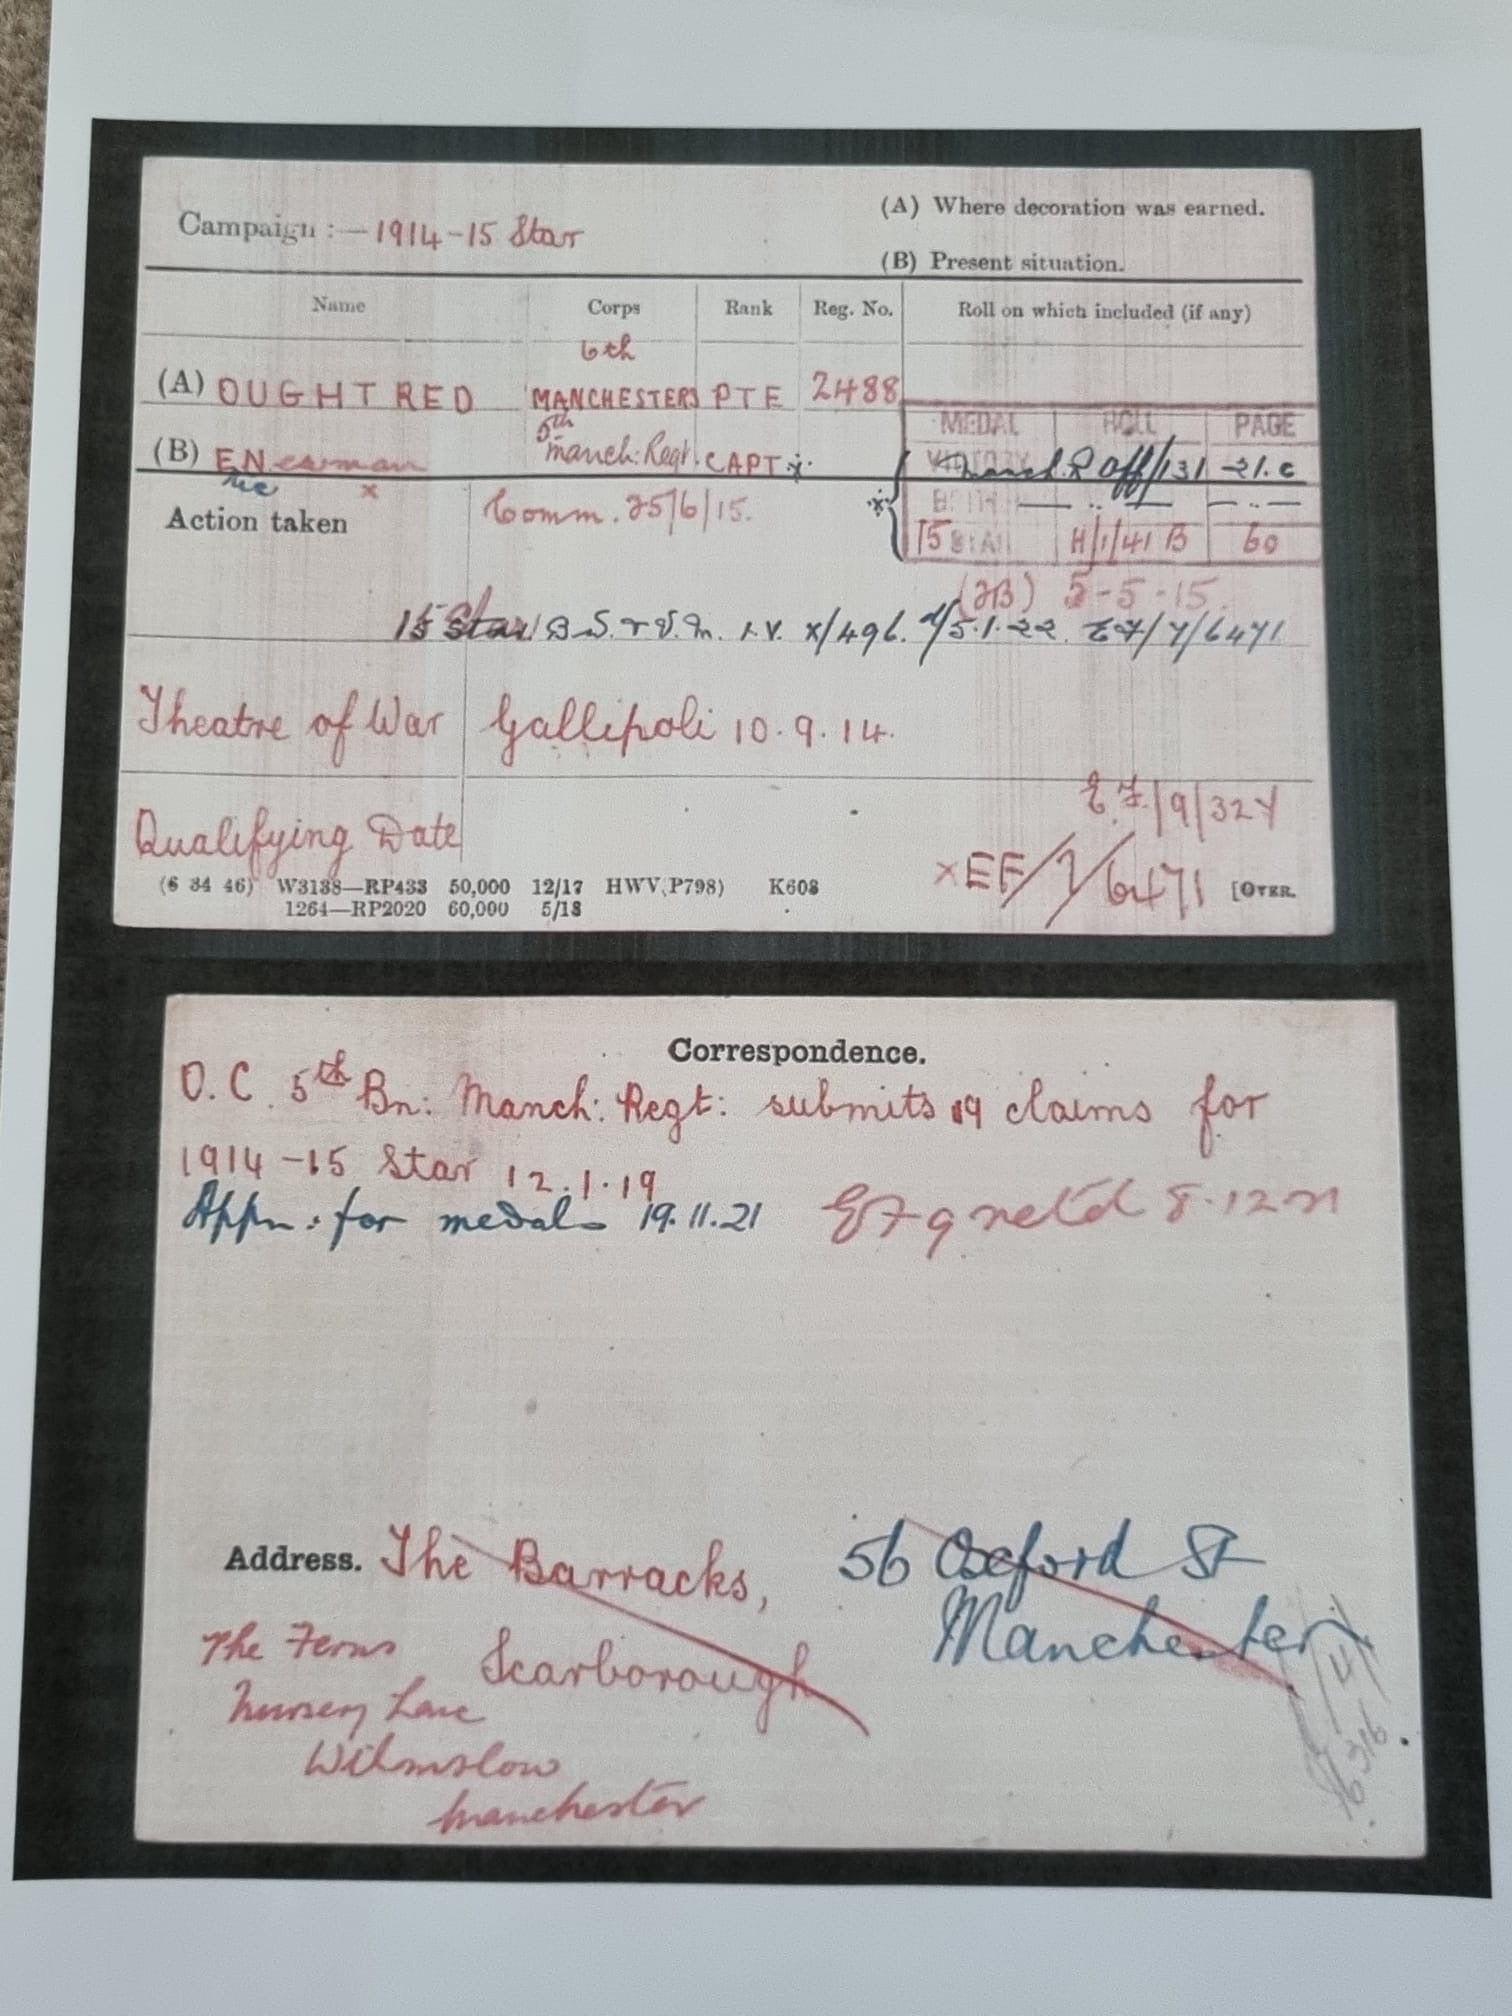 Campaign :— 1914-15 Star
(A) Where decoration was earned.
(B) Present situation.
Name Corps Rank Reg. No. Roll on which included (if any)
6th
(A) OUGHTRED MANCHESTERS PTE 2488
MEDAL ROLL PAGE
5th
(B) EN Manch: Regt. CAPT
VICTORY Manch. R Off/131 21.
BRITISH — .. — — .. —
15 STAR H/1/41 B 60
x
Action taken Comm. 25/6/15.
(2B) 5-5-15.
15 Star B.S. + V.M. I.V. X/496. d/5.1.22. E7/7/6471
Theatre of War Gallipoli 10.9.14.
Qualifying Date
E.F./9/324
x EF/7/6471
(6 34 46) W3138—RP433 50,000 12/17 HWV(P798) K608 [OVER.
1264—RP2020 60,000 5/18
Correspondence.
O.C. 5th Bn: Manch: Regt: submits 19 claims for
1914-15 Star 12.1.19
Appn: for medals 19.11.21 EF9 retd 8.12.21
Address. The Barracks,
Scarborough
56 Oxford St
Manchester
The Ferns
Nursery Lane
Wilmslow
Manchester